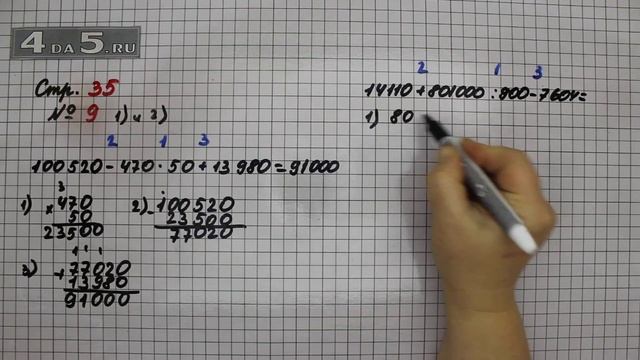 4DA5.RU
Стр. 35
№ 9 1) и 2)
2 1 3
100520 - 470 · 50 + 13980 = 91000
1) 3 2)
× 470 - 100520
50 23500
23500 77020
3) + 77020
13980
91000
2 1 3
14110 + 801000 : 900 - 7604 =
1) 80